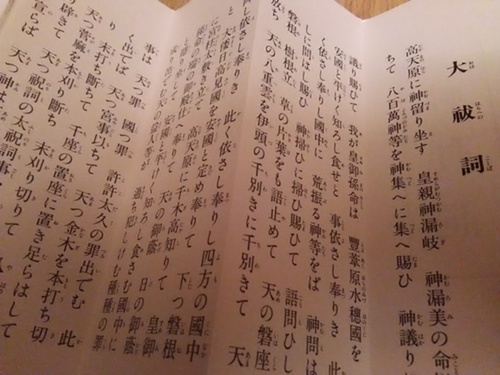 大祓詞
高天原に神留り坐す 皇親神漏岐 神漏美の命
ちて 八百萬神等を神集へに集へ賜ひ 神議り
議り賜ひて 我が皇御孫命は 豐葦原水穗國を
安國と平けく知ろし食せと 事依さし奉りき 此
く依さし奉りし國中に 荒振る神等をば 神問は
しに問はし賜ひ 神掃ひに掃ひ賜ひて 語問ひし
磐根 樹根立 草の片葉をも語止めて 天の磐座
放ち 天の八重雲を 伊頭の千別きに千別きて 天
依さし奉りき 此く依さし奉りし四方の國中
と 大倭日高見國を安國と定め奉りて 下つ磐根
に宮柱太敷き立て 高天原に千木高知りて 皇御
孫命の瑞の御殿仕へ奉りて 天の御蔭 日の御蔭
と隱り坐して 安國と平けく知ろし食さむ國中に
成り出でむ天の益人等が 過ち犯しけむ種種の罪
事は 天つ罪 國つ罪 許許太久の罪出でむ 此
く出でば 天つ宮事以ちて 天つ金木を本打ち切
り 末打ち斷ちて 千座の置座に置き足らはして
天つ菅麻を本刈り斷ち 末刈り切りて
り辟きて 天つ祝詞の太祝詞事
宣らば 天つ神は